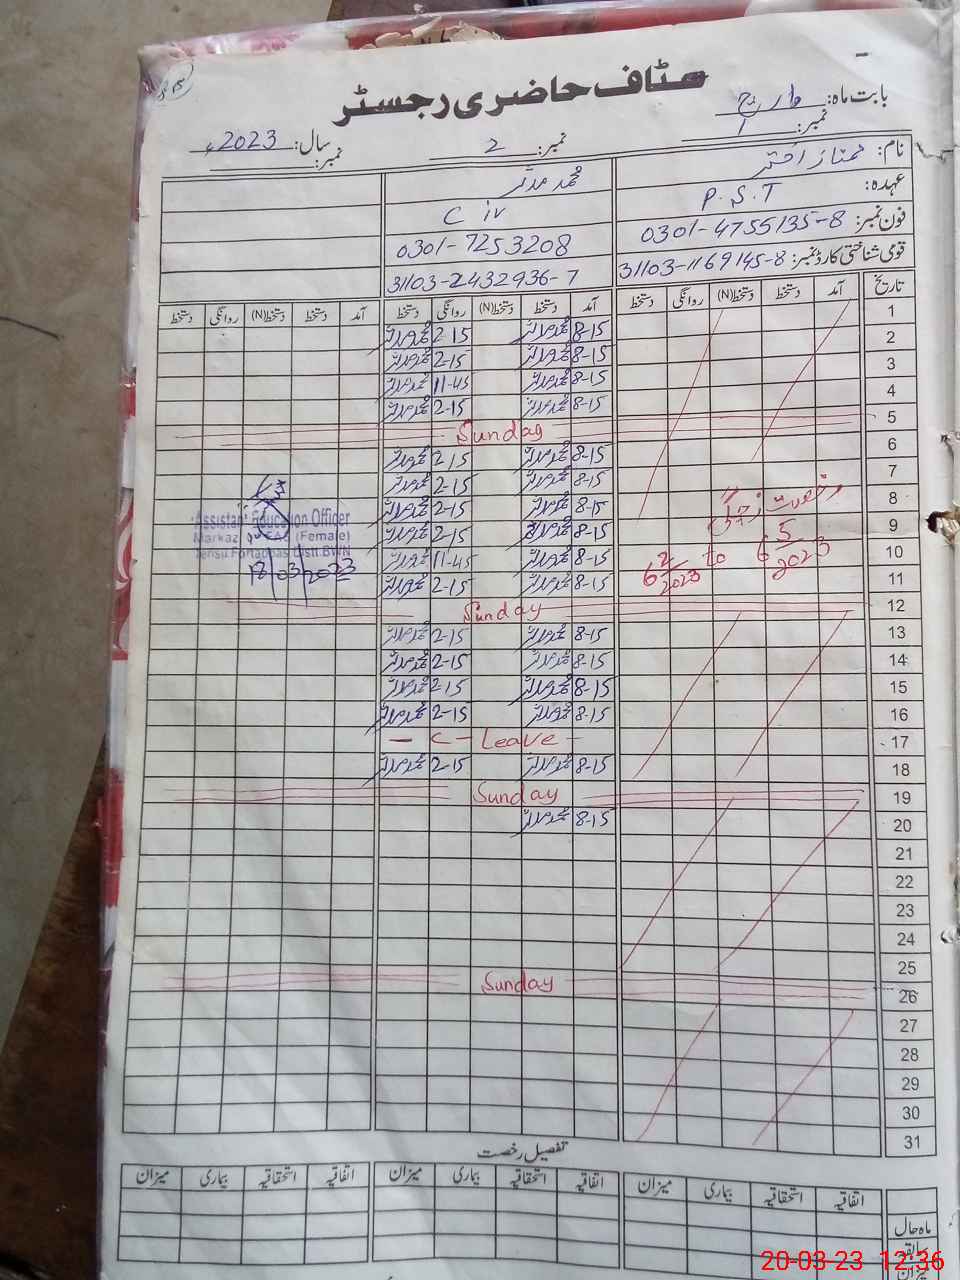 سٹاف حاضری رجسٹر
بابت ماہ: مارچ
سال: 2023ء
نمبر: 1
نمبر: 2
نمبر:
نام: ممتاز اختر
محمد مدثر
عہدہ: P.S.T
C iv
فون نمبر: 0301-4755135-8
0301-7253208
قومی شناختی کارڈ نمبر: 31103-1169145-8
31103-2432936-7
تاریخ آمد دستخط دستخط(N) روانگی دستخط آمد دستخط دستخط(N) روانگی دستخط آمد دستخط دستخط(N) روانگی دستخط
1 8-15 محمد مدثر 2-15 محمد مدثر
2 8-15 محمد مدثر 2-15 محمد مدثر
3 8-15 محمد مدثر 11-45 محمد مدثر
4 8-15 محمد مدثر 2-15 محمد مدثر
5 Sunday
6 8-15 محمد مدثر 2-15 محمد مدثر
7 8-15 محمد مدثر 2-15 محمد مدثر
8 8-15 محمد مدثر 2-15 محمد مدثر
9 8-15 محمد مدثر 2-15 محمد مدثر
10 8-15 محمد مدثر 11-45 محمد مدثر
11 8-15 محمد مدثر 2-15 محمد مدثر
12 Sunday
13 8-15 محمد مدثر 2-15 محمد مدثر
14 8-15 محمد مدثر 2-15 محمد مدثر
15 8-15 محمد مدثر 2-15 محمد مدثر
16 8-15 محمد مدثر 2-15 محمد مدثر
17 - C - Leave -
18 8-15 محمد مدثر 2-15 محمد مدثر
19 Sunday
20 8-15 محمد مدثر
21
22
23
24
25
26 Sunday
27
28
29
30
31
"رخصت زچگی"
6 2/2023 to 6 5/2023
Assistant Education Officer
Markaz (Female)
Tehsil Fortabbas Distt.BWN
18/03/2023
تفصیل رخصت
اتفاقیہ استحقاقیہ بیماری میزان اتفاقیہ استحقاقیہ بیماری میزان اتفاقیہ استحقاقیہ بیماری میزان
ماہ حال
سابقہ
میزان
20-03-23 12:36